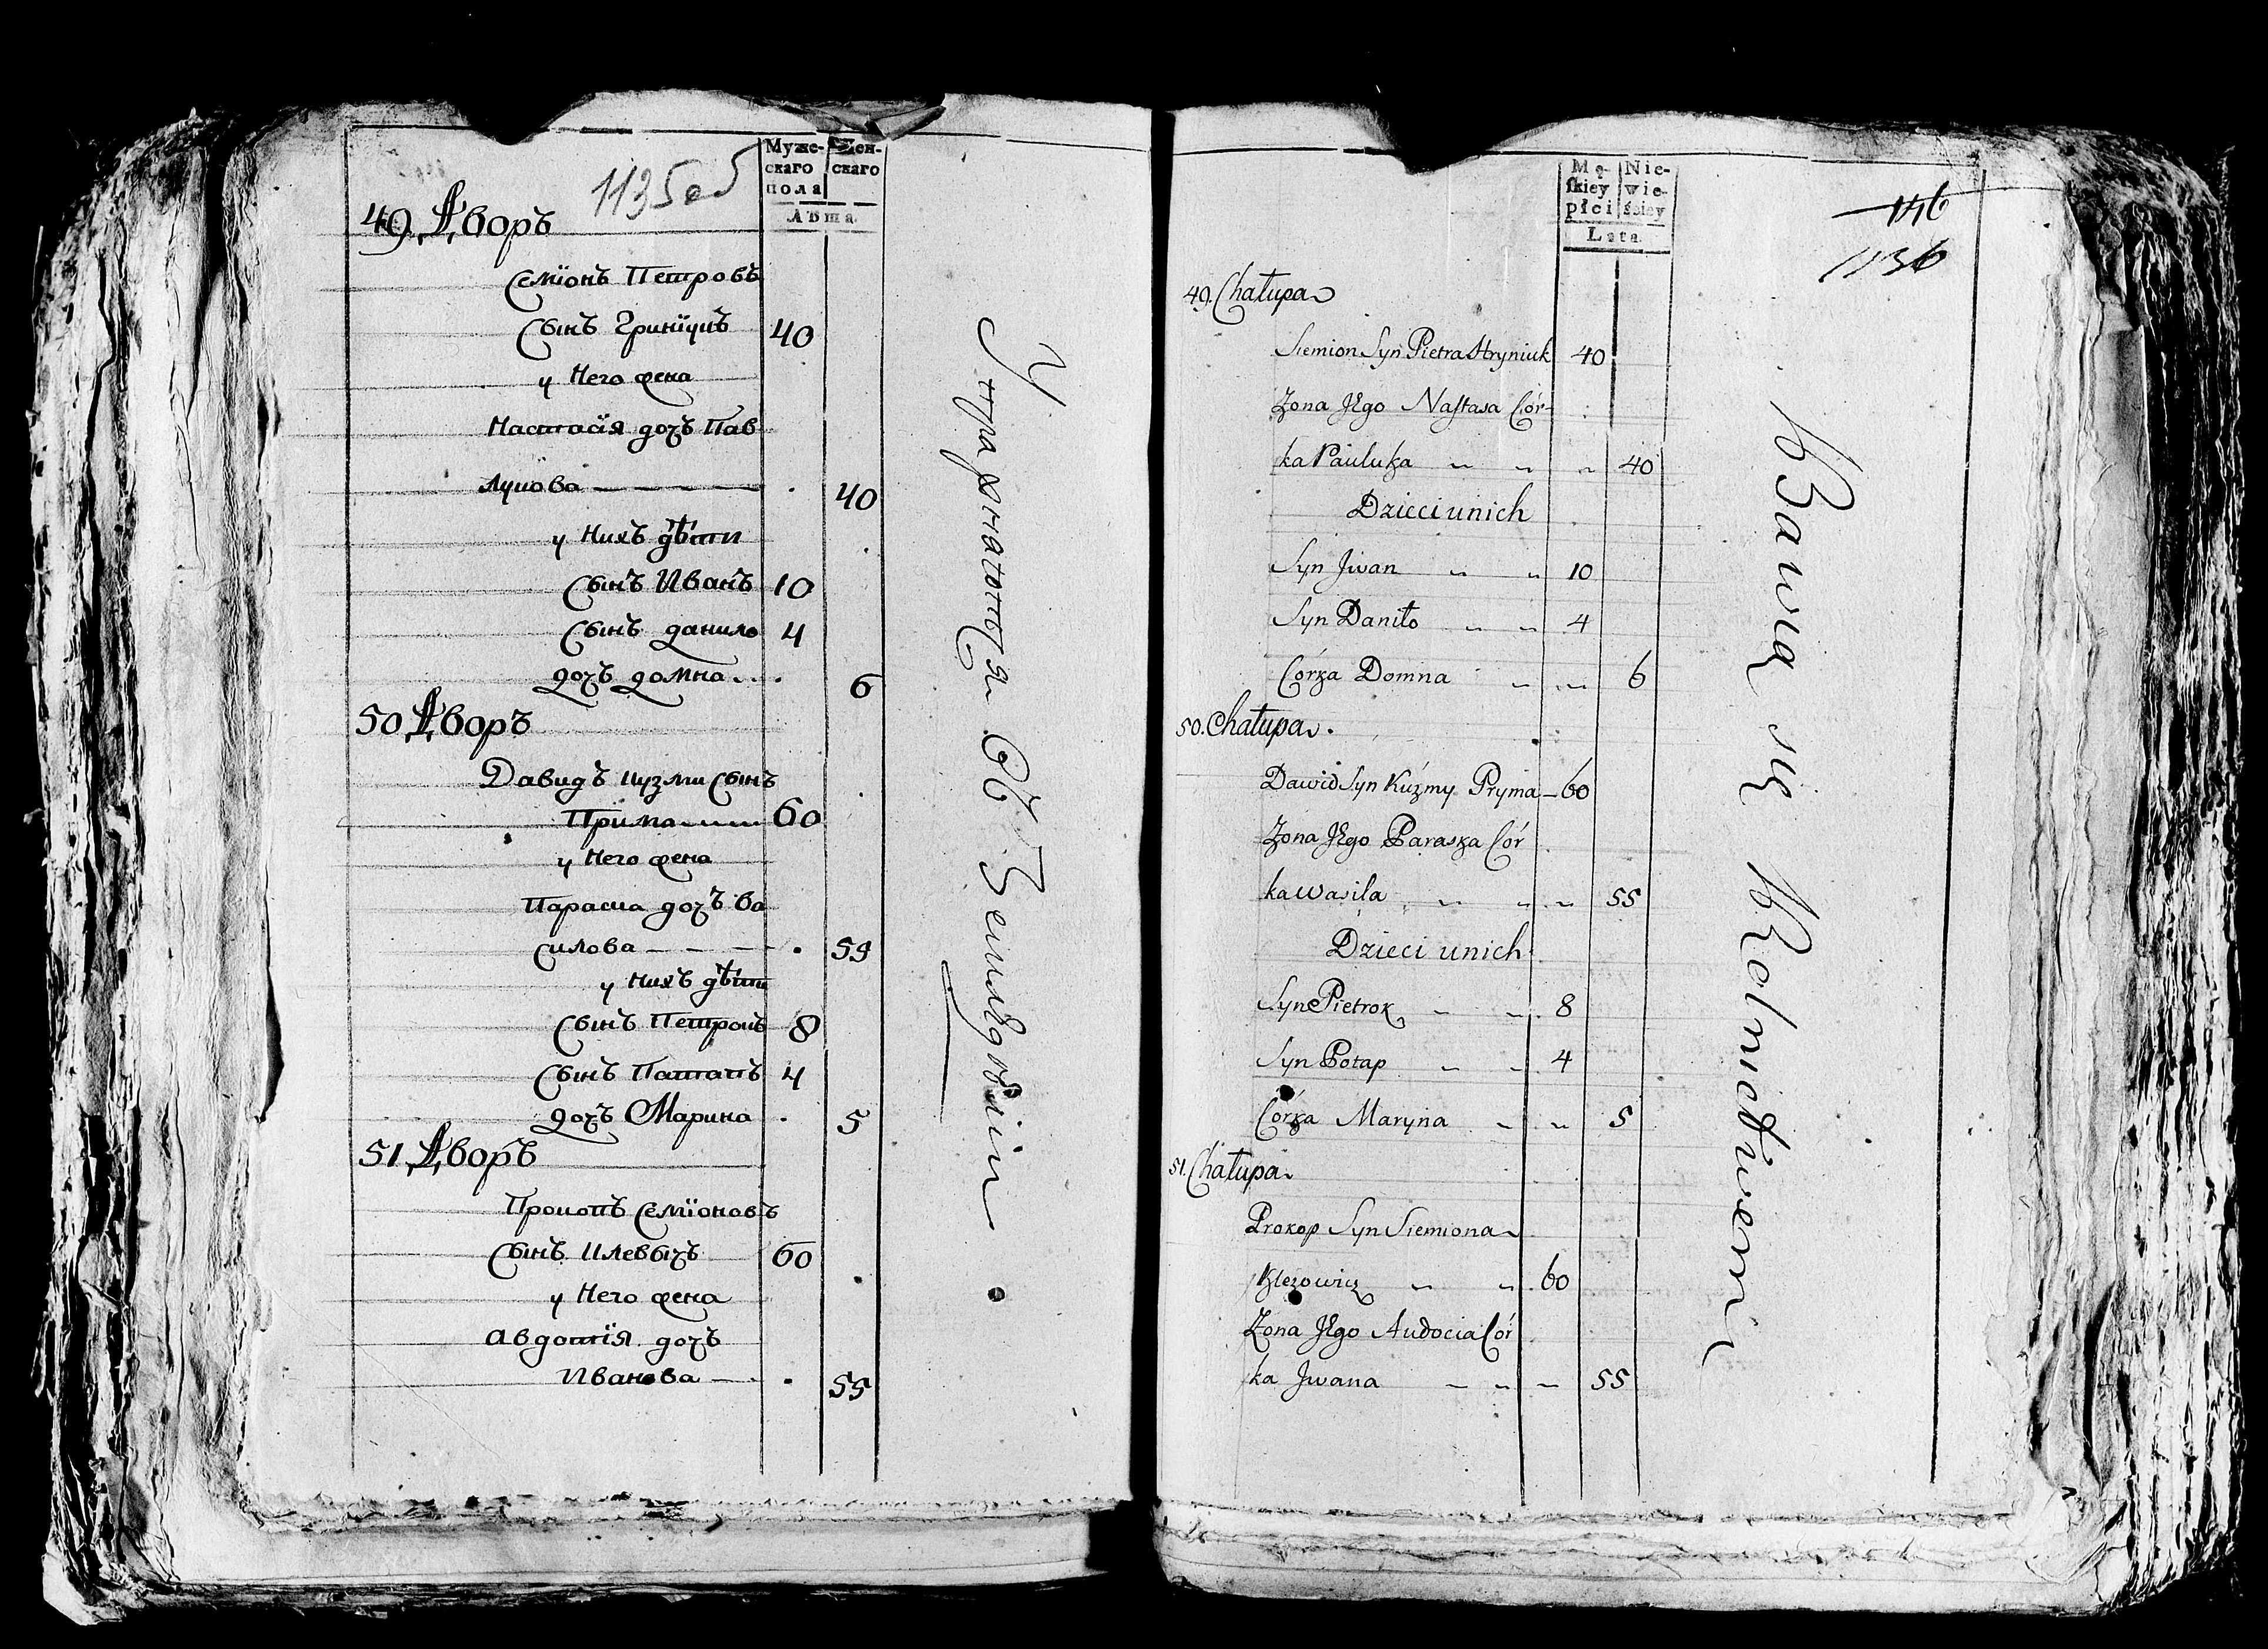 1135 об
Муже-
скаго
пола
Жен-
скаго
Лѣта
49 Дворъ
Семіонъ Петровъ
Сынъ Гриніукъ 40
у Него жена
Настасія дочъ Пав
лукова 40
у Нихъ дѣти
Сынъ Иванъ 10
Сынъ данило 4
дочъ домна 6
50 Дворъ
Давидъ кузми Сынъ
Прима 60
у Него жена
Параска дочъ Ва
силова 55
у Нихъ дѣти
Сынъ Петрокъ 8
Сынъ Патапъ 4
дочъ Марина 5
51 Дворъ
Прокопъ Семіоновъ
Сынъ 60
у Него жена
Авдотія дочъ
Иванова 55
Упражнятопся въ Земледѣліи
Mę-
skiey
płci
Nie-
wie-
ściey
Lata
146
1136
49. Chałupa
Siemion Syn Pietra Hryniuk 40
Zona Jego Nastasa Cór-
ka Pauluka 40
Dzieci unich
Syn Jwan 10
Syn Daniło 4
Córka Domna 6
50. Chałupa.
Dawid Syn Kuźmy Pryma 60
Zona Jego Paraska Cór
ka Wasila 55
Dzieci unich
Syn Pietrok 8
Syn Potap 4
Córka Maryna 5
51. Chałupa
Prokop Syn Siemiona
60
Zona Jego Audocia Cór
ka Jwana 55
Bawią się Rolnictwem